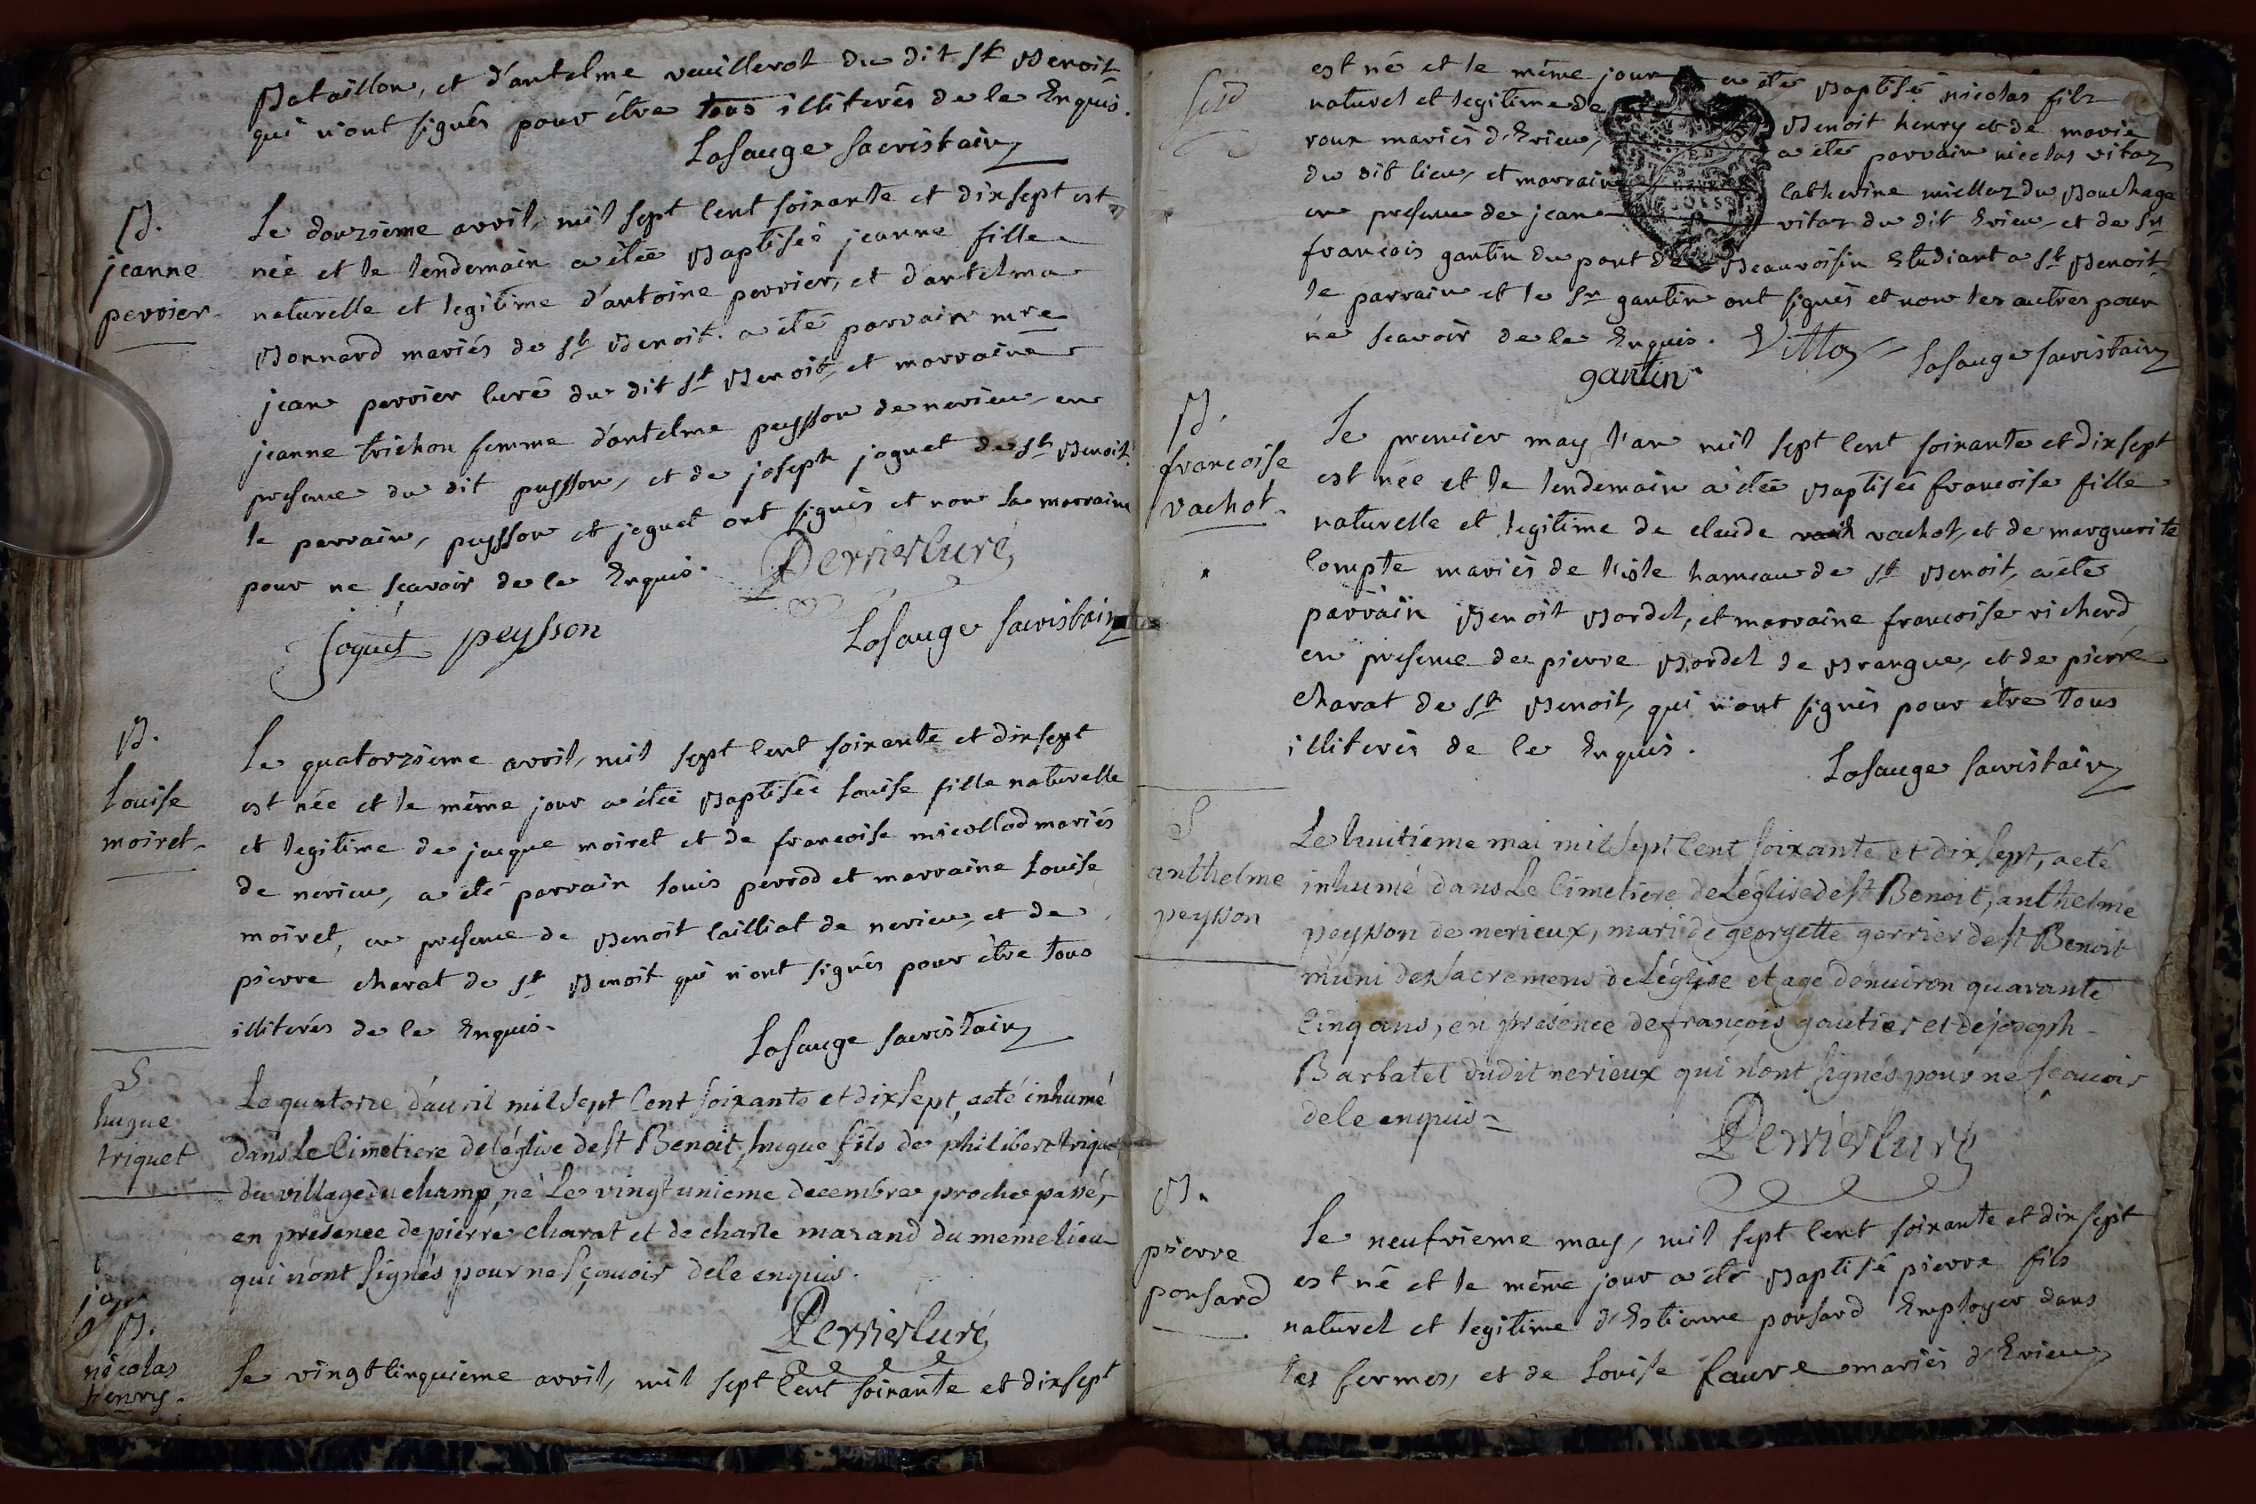 Bataillon, et d'antelme veuillerot du dit St Benoit
qui n'ont signés pour étre tous illiterés de ce Enquis.
Lasauge sacristain
B.
jeanne
perrier
Le douzieme avril, mil sept cent soixante et dixsept est
née et le lendemain a étée Baptisée jeanne fille
naturelle et legitime d'antoine perrier, et d'antelma
Bonnard mariés de St Benoit. a été parrain mre
jean perrier curé du dit St Benoit, et marraine
jeanne trichon femme d'antelme peysson de nerieu, en
presence du dit peysson, et de joseph joguet de St Benoit
le parrain, peysson et joguet ont signés et non la marraine
pour ne sçavoir de ce Enquis.
Perrier curé
joguet peysson
Lasauge sacristain
B.
Louise
moiret
Le quatorzieme avril, mil sept cent soixante et dixsept
est née et le même jour a étée Baptisée Louise fille naturelle
et legitime de jacque moiret et de francoise micollod mariés
de nerieu, a été parrain louis perrod et marraine Louise
moiret, en presence de Benoit cailliat de nerieu, et de
pierre charat de St Benoit qui n'ont signés pour étre tous
illiterés de ce Enquis.
Lasauge sacristain
S
hugue
triquet
Le quatorze d'avril mil sept cent soixante et dixsept, a eté inhumé
dans Le Cimetiere de l'église de St Benoit, hugue fils de philibert triquet
du village du champ, né Le vingt unieme decembre proche passé,
en présence de pierre charat et de charle marand du meme lieu
qui n'ont signés pour ne sçavoir de ce enquis.
Perrier curé
B.
nicolas
henry.
Le vingt cinquieme avril, mil sept cent soixante et dixsept
est né et le même jour a été Baptisé nicolas fils
naturel et legitime de Benoit henry et de marie
roux mariés d'Evieu, a été parrain nicolas vitoz
du dit lieu, et marraine catherine miellaz du Bouchage
en presence de jean vitoz du dit Evieu, et de Sr
francois gantin du pont de Beauvoisin Etudiant a St Benoit
le parrain et le Sr gantin ont signés et non les autres pour
ne scavoir de ce Enquis.
Vittoz
Lasauge sacristain
gantin
B.
francoise
vachot.
Le premier may, l'an mil sept cent soixante et dixsept
est née et le lendemain a étée Baptisée francoise fille
naturelle et legitime de claude vachot, et de marguerite
Compte mariés de l'isle hameau de St Benoit, a été
parrain Benoit Bordel, et marraine francoise richerd
en presence de pierre Bordel de Brangue, et de pierre
charat de St Benoit, qui n'ont signés pour étre tous
illiterés de ce Enquis.
Lasauge sacristain
S
anthelme
peysson
Le huitieme mai mil sept cent soixante et dixsept, a eté
inhumé dans Le Cimetiere de L'église de St Benoit, anthelme
peysson de nerieux, mari de georgette gerrier de St Benoit
muni des sacremens de L'église et agé d'enuiron quarante
cinq ans, en présence de françois gautier et de joseph
Barbatet dudit nerieux qui n'ont signés pour ne sçauoir
de ce enquis
Perrier curé
B.
pierre
ponsard
Le neufvieme may, mil sept cent soixante et dix sept
est né et le même jour a été Baptisé pierre fils
naturel et legitime d'Estienne ponsard Employer dans
les fermes, et de Louise faure mariés d'Evieu